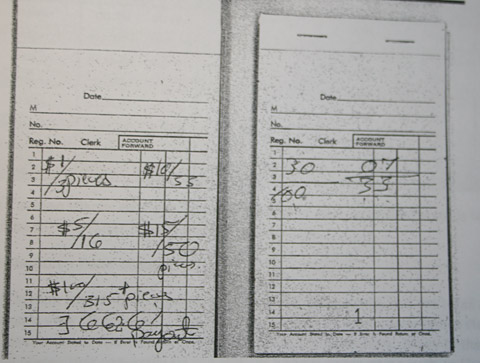 Date
M
No.
Reg. No. Clerk ACCOUNT FORWARD
1
2 $1/
3 3 pieces $10/55
4
5
6
7 $5/ $15
8 16 /50
9
10 pieces
11
12 $100/
13 315+ pieces
14
15 payout
Your Account Stated to Date — If Error Is Found Return at Once.
Date
M
No.
Reg. No. Clerk ACCOUNT FORWARD
1
2 30 07
3 53
4
5
6
7
8
9
10
11
12
13
14 1
15
Your Account Stated to Date — If Error Is Found Return at Once.